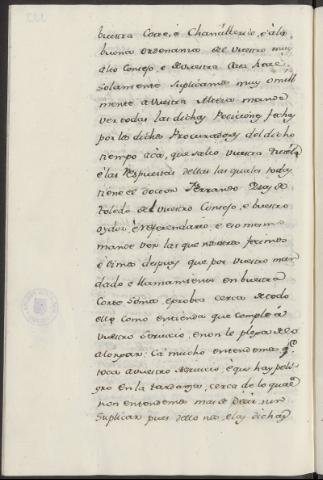 vuestra Corte, e Chancilleria, e a la
buena ordenanza del vuestro muy
alto Consejo, e de vuestra Casa
solamente suplicamos muy omill
mente a vuestra Alteza mande
ver todas las dichas Peticiones fechas
por los dichos Procuradores del dicho
tiempo aca, que salio vuestra
e las Respuestas dellas las quales todas
tiene el doctor Ferrando Diaz de
Toledo del vuestro Consejo, e vuestro
oydor, e referendario, e eso mesmo
mande ver las que nosotros fecimos
e dimos despues que por vuestro man
dado e llamamiento en vuestra
Corte somos, e probea cerca de todo
ello como entienda que cumple a
vuestro servicio, e non le plega de lo
alongar; Ca mucho entendemos q.e
toca a vuestro servicio, e que hay peli
gro en la tardanza; cerca de lo qual
non entendemos mas de decir, nin
suplicar pues dello nos, e las dichas